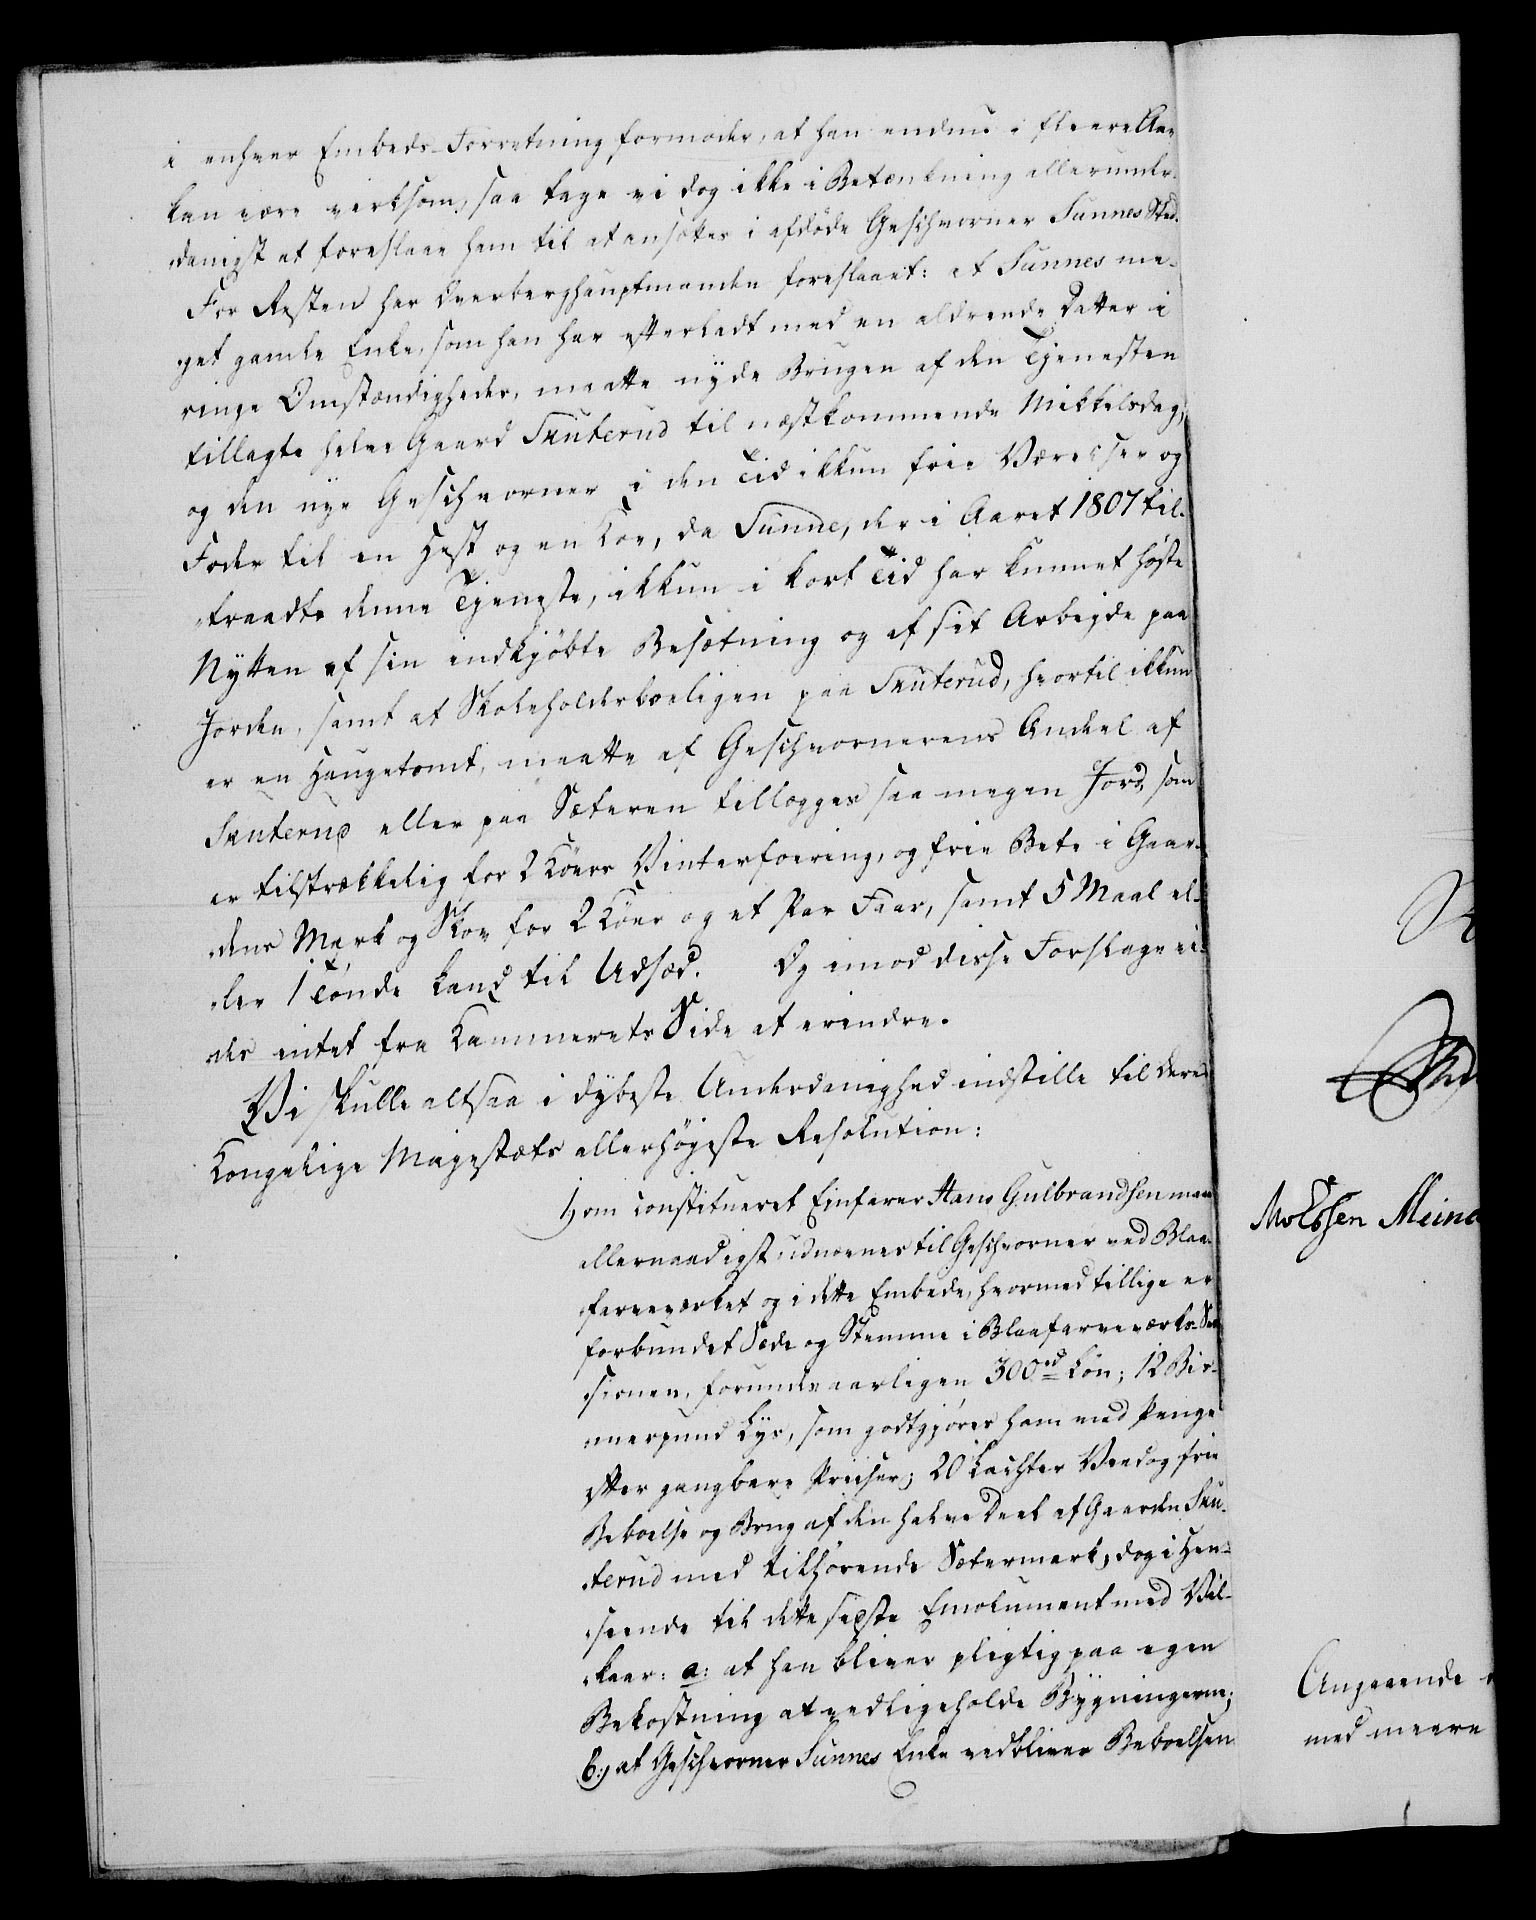 i enhver Embeds-Forretning formoder, at han endnu i fleere Aar
kan være virksom, saa tage vi dog ikke i Betænkning allerunder-
danigst at foreslaae ham til at ansættes i afdøde Geschworner Sunnes Sted.
For Resten har Overberghauptmanden foreslaaet: at Sunnes me-
get gamle Enke, som han har efterladt med en aldrende Datter i
ringe Omstændigheder, maatte nyde Brugen af den Tjenesten
tillagte halve Gaard Skuterud til næstkommende Mikkelsdag,
og den nye Geschworner i den Tid ikkun frie Værelser og
Foder til en Hest og en Koe, da Sunne, der i Aaret 1807 til-
traadte denne Tjeneste, ikkun i kort Tid har kunnet høste
Nytten af sin indkjøbte Besætning og af sit Arbejde paa
Jorden, samt at Skoleholderboeligen paa Skuterud, hvortil ikkun
er en Haugetomt, maatte af Geschwornerens Andeel af
Skuterud eller paa Sæteren tillægges saa megen Jord, som
er tilstrækkelig for 2 Køers Vinterfoering, og frie Bete i Gaar-
dens Mark og Skov for 2 Køer og et Par Faar, samt 5 Maal el-
ler 1 Tønde Land til Udsæd. Og imod disse Forslage ei-
des intet fra Kammerets Side at erindre.
Vi skulle altsaa i dybeste Underdanighed indstille til Deres
Kongelige Majestæts allerhøjeste Resolution:
1, om constitueret Einfarer Hans Gulbrandsen maa
allernaadigst udnævnes til Geschworner ved Blaa-
farveværket og i dette Embede, hvormed tillige er
forbundet Sæde og Stemme i Blaafarveværks-Ses-
sionen, forunde aarligen 300 rd Løn; 12 Bis-
merpund Lys, som godtgjøres ham med Penge
efter gangbare Priiser; 20 Lachter Veed og frie
Beboelse og Brug af den halve Deel af Gaarden Sku-
terud med tilhørende Sætermark, dog i Hen-
seende til dette sidste Emolument med Vil-
kaar: a: at han bliver pligtig paa egen
Bekostning at vedligeholde Bygningerne;
b:, at Geschworner Sunnes Enke vedbliver Beboelsen
Angaaende
med meere